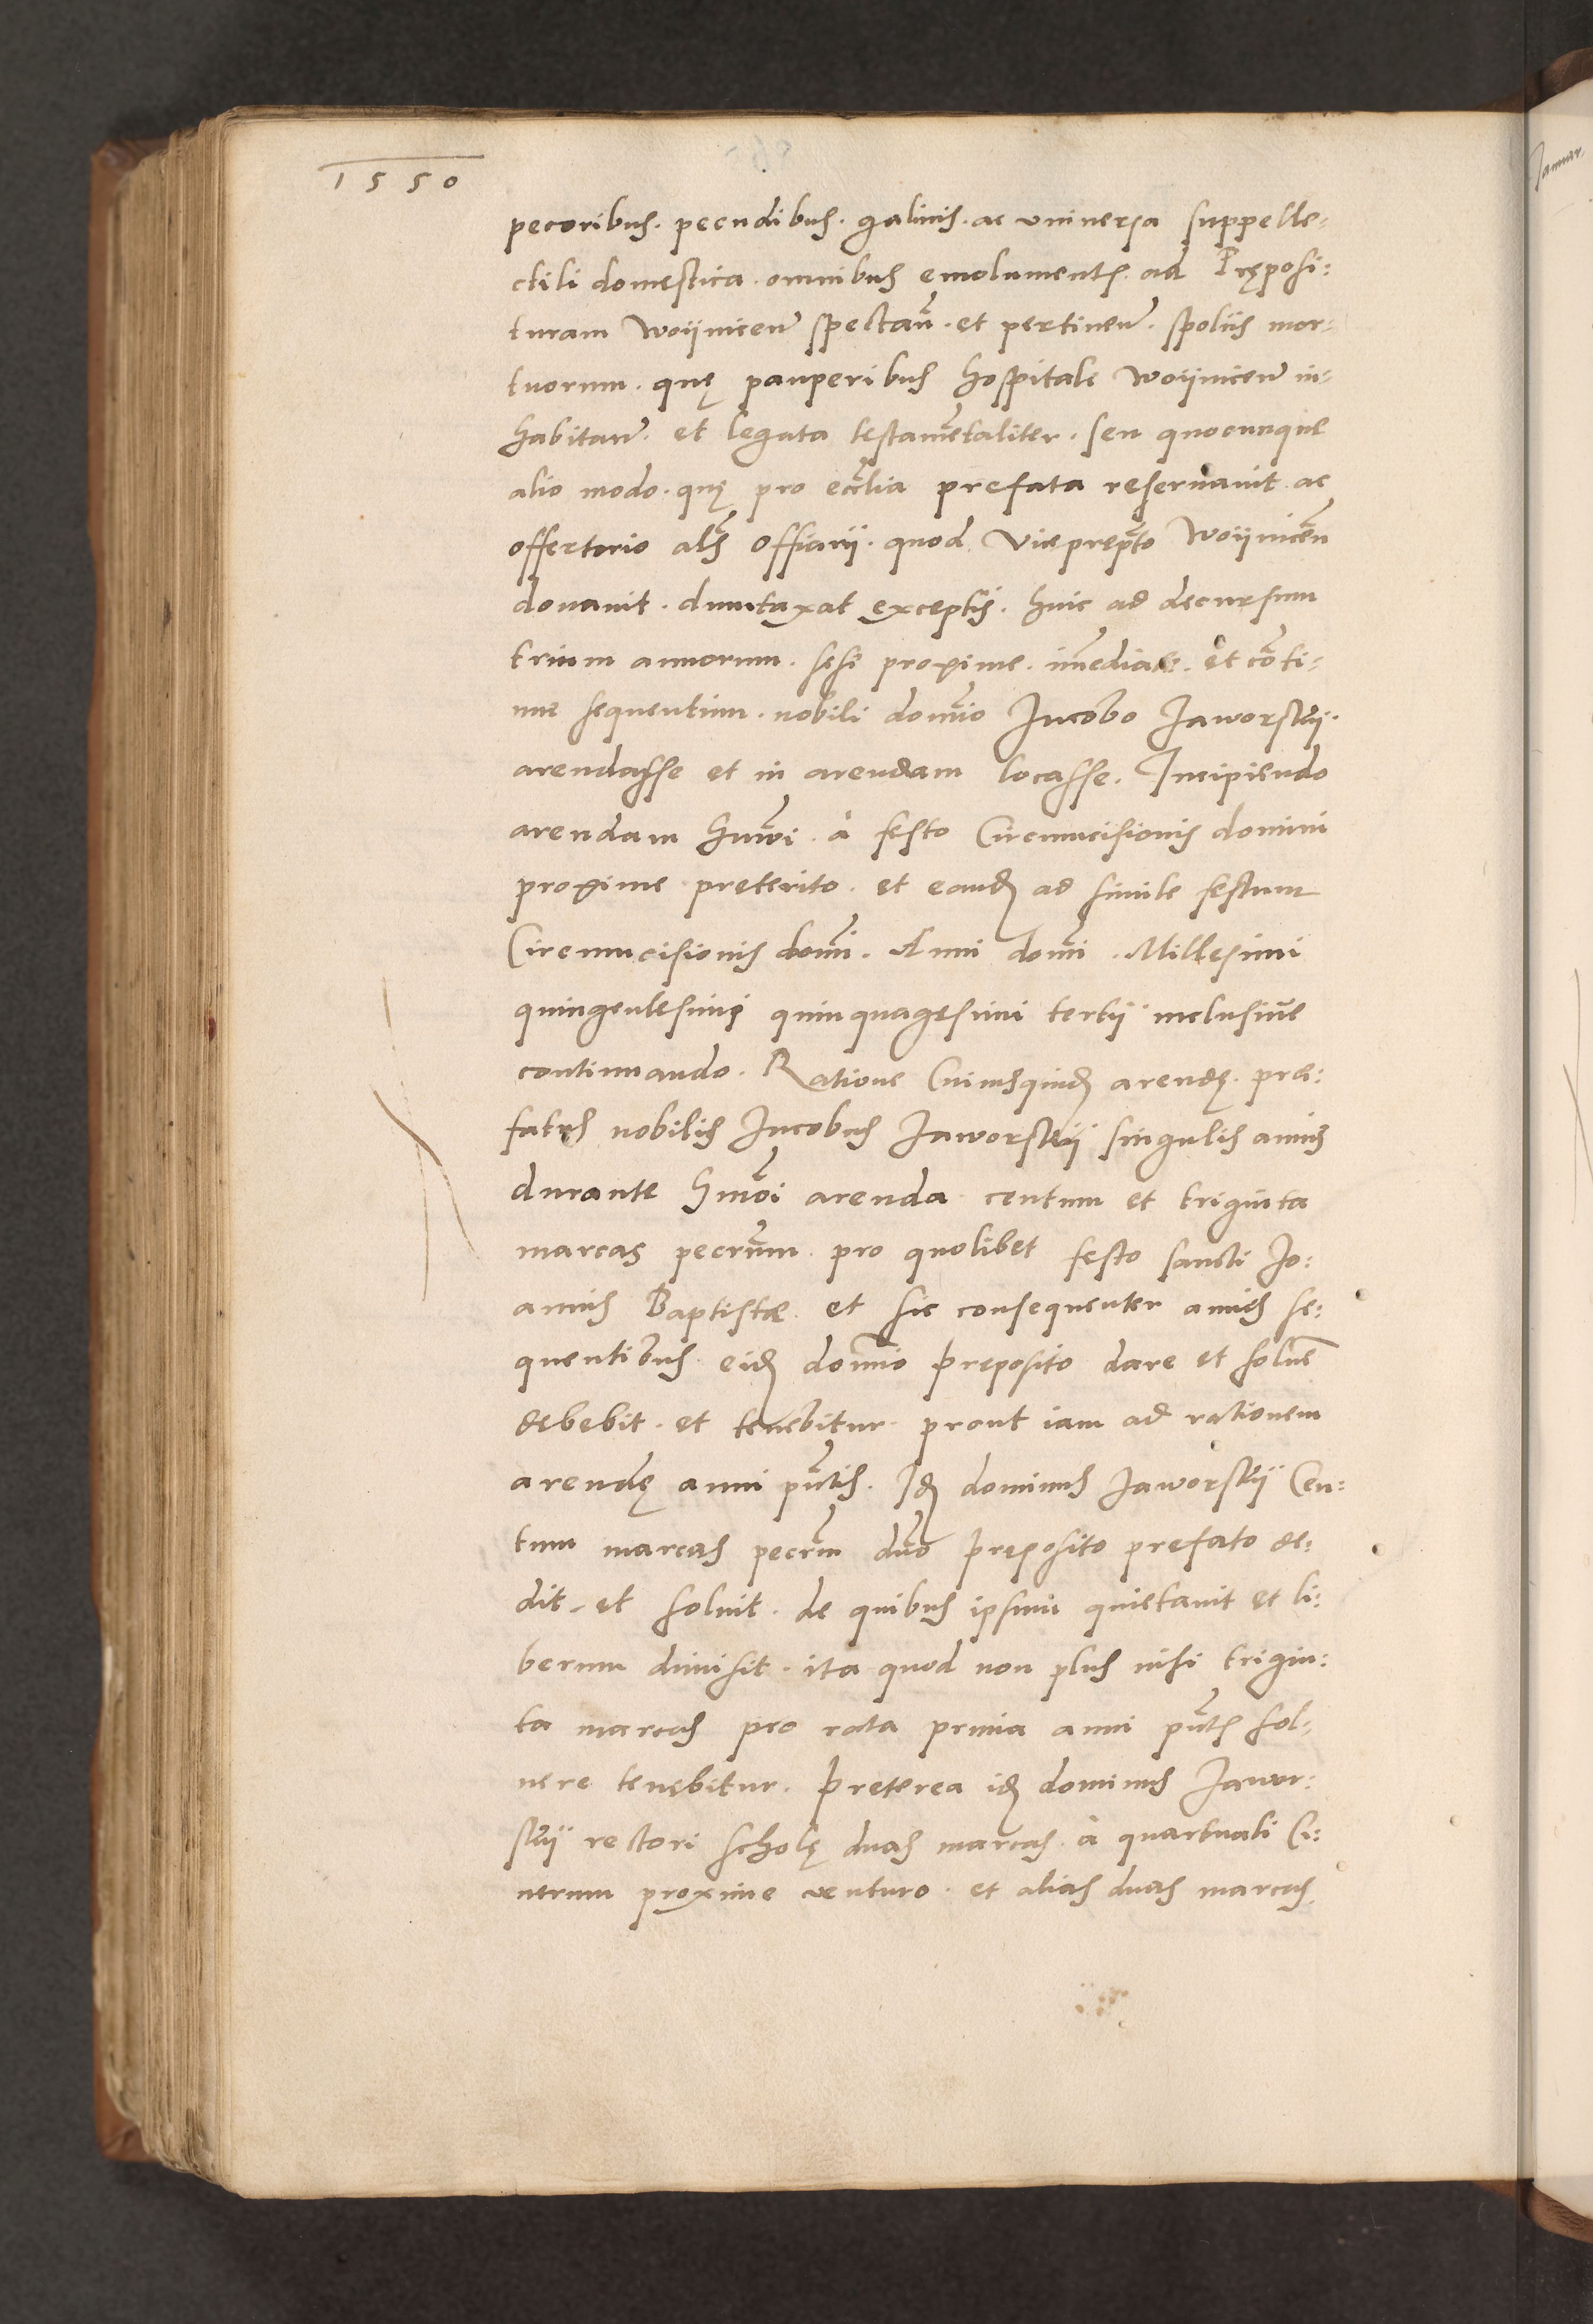 1550
pecoribus. pecudibus. galinis. ac vniuersa suppelle-
ctili domestica. omnibus emolumentis. ad Pręposi:
turam Woijnicen̄ spectan̄. et pertinen̄. spoliis mor-
tuorum. quę pauperibus Hospitale Woijnicen̄ in-
habitan̄. et legata testamētaliter. seu quocunque
alio modo. quę pro eccl̄ia prefata reseruauit. ac
offertorio al̄s Offiarij. quod Viceprep̄to Woijnicēn
donauit. duntaxat exceptis. huic ad decursum
trium annorum. sesi proxime. im̄ediate. et cōti-
nue sequentium. nobili domīo Jacobo Jaworskij.
arendasse et in arendam locasse. Incipiendo
arendam hm̄oi. à festo Circumcisionis domini
proxime preterito. et eand̨ ad simile festum
Circumcisionis domī. Anni domī. Millesimi
quingentesimi quinquagesimi tertij inclusiue
continuando. Ratione Cuiusquid̨ arendę. prę:
fatus nobilis Jacobus Jaworskij singulis annis
durante hm̄oi arenda centum et triginta
marcas pecun̄m. pro quolibet festo sancti Jo:
annis Baptistæ. et sic consequenter annis se:
quentibus eid̨ domīo preposito dare et soluē
debebit. et tenebitur. prout iam ad rationem
arendę anni pn̄tis. Jd̨ dominus Jaworskij Cen:
tum marcas pecūm dn̄o pręposito prefato de:
dit. et soluit. de quibus ipsum quietauit et li:
berum dimisit. ita quod non plus nisi trigin:
ta marcas pro rata prima anni pn̄tis sol-
uere tenebitur. Preterea id̨ dominus Jawor:
skij rectori scholę duas marcas. à quartuali Ci:
nerum proxime venturo. et alias duas marcas.